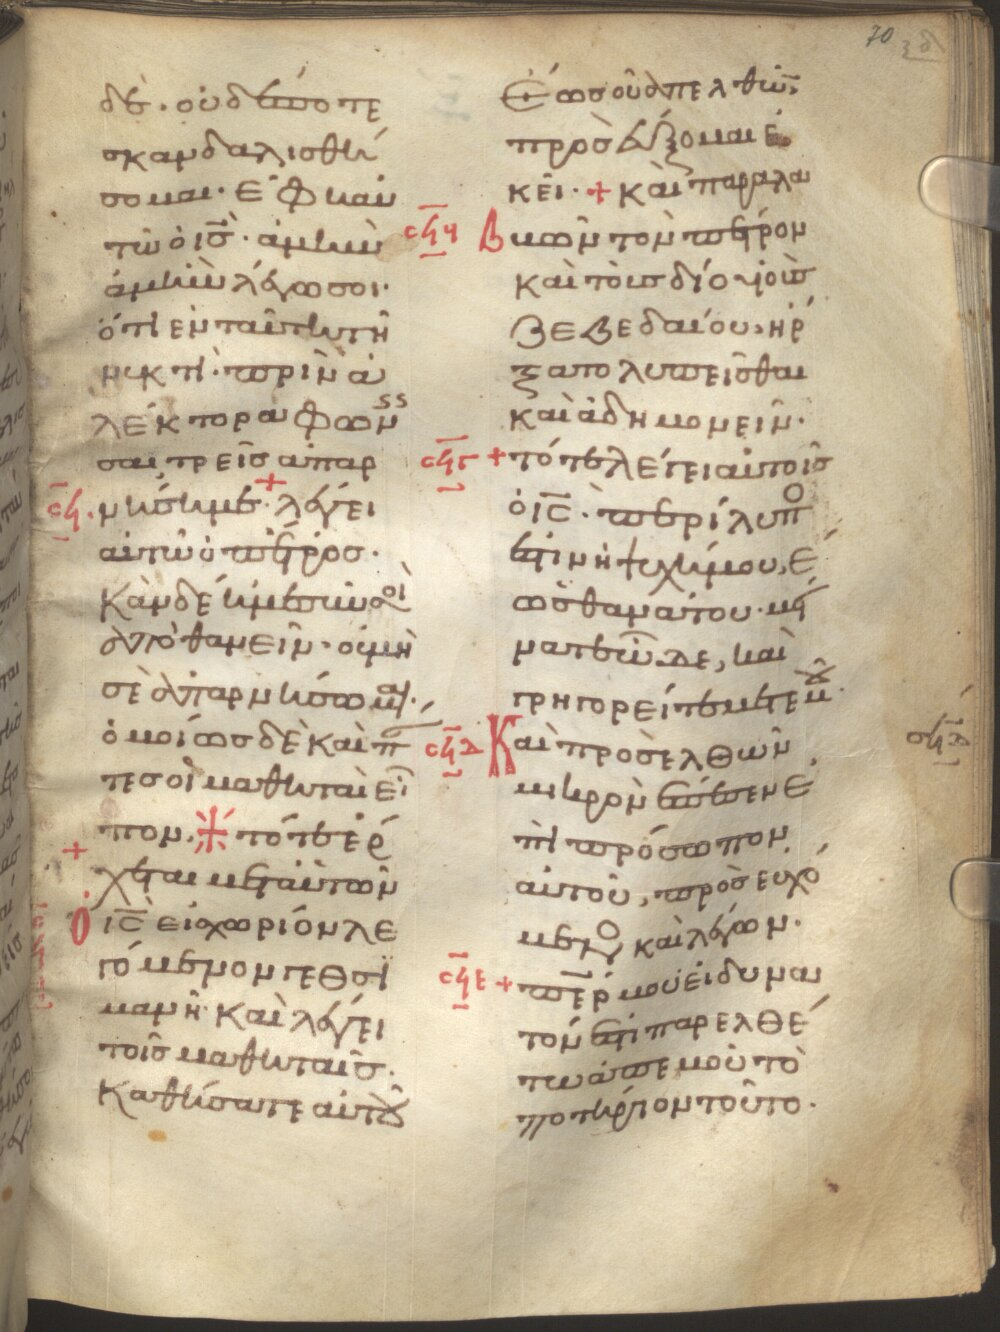 70
δέ· οὐδέποτε
σκανδαλισθή
σομαι· ἔφη αὐ
τῶ ὁ ις̄· ἀμὴν
ἀμὴν λέγω σοι·
ὅτι ἐν ταύτη τῆ
νυκτὶ· πρὶν ἀ
λέκτορα φων
σαι τρεῖς ἀπαρ
σϟ· νήση με· + λέγει
αὐτῶ ὁ πέτρος·
Κἂν δέη με σὺν σοὶ
ἀποθανεῖν· οὐ μὴ
σὲ ἀπαρνήσωμαι·
ὁμοίως δὲ καὶ π
τες οἱ μαθηταὶ εἶ
πον· τότε ἔρ
+ χεται μετ' αὐτῶν
Ὁ ις̄ εἰς χωρίον λε
γόμενον γεθση
μανῆ· Καὶ λέγει
τοῖς μαθηταῖς·
Καθήσατε αὐτοῦ
Ἕως οὗ ἀπελθὼν
προσεύξομαι ἐ
κεῖ· + Καὶ παραλα
σϟη Βων τὸν πέτρον
καὶ τοὺς δύο υἱοὺς
ζεβεδαίου, ἤρ
ξατο λυπεῖσθαι
καὶ ἀδημονεῖν·
σϟγ + τότε λέγει αὐτοῖς
ὁ ις̄· περίλυπο
ἐστιν ἡ ψυχή μου, ἕ
ως θανάτου· μεί
νατε ὧδε, καὶ
γρηγορεῖτε μετ' ἐμοῦ·
σϟδ Καὶ προσελθὼν
μικρὸν ἔπεσεν ἐ
πὶ πρόσωπον
αὐτοῦ, προσευχό
μενο καὶ λέγων·
σϟε + περ μου εἰ δυνα
τόν ἐστι παρελθέ
τω ἀπ' ἐμοῦ τὸ
ποτήριον τοῦτο·